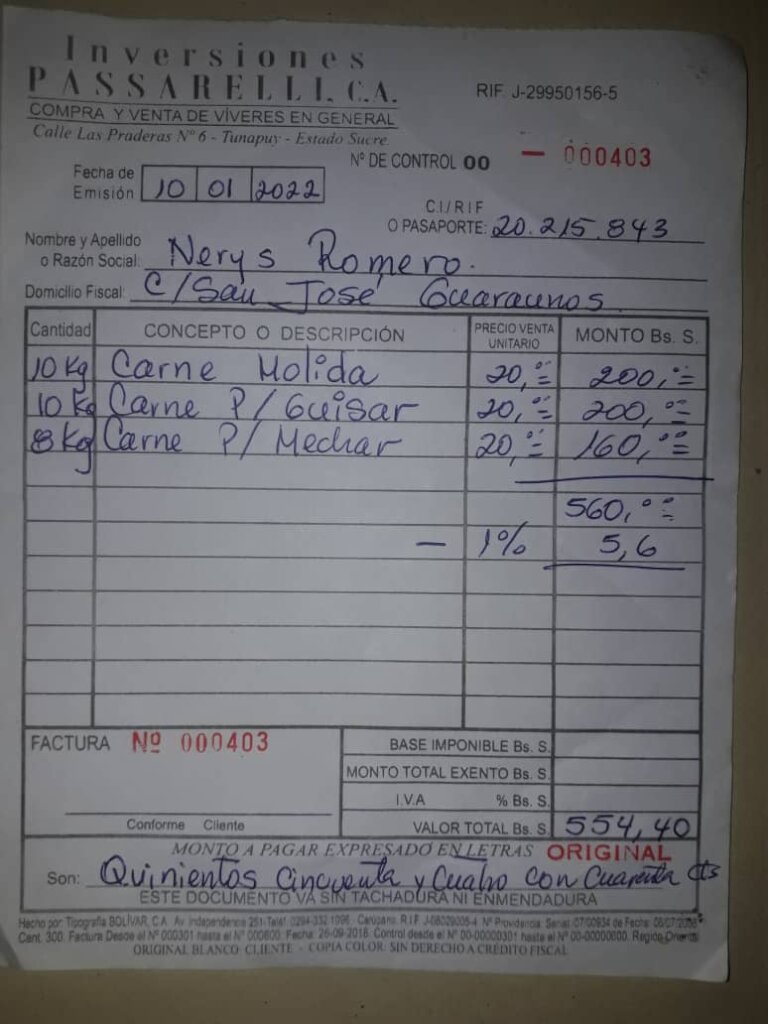 Inversiones
PASSARELLI, C.A.
RIF. J-29950156-5
COMPRA Y VENTA DE VÍVERES EN GENERAL
Calle Las Praderas Nº 6 - Tunapuy - Estado Sucre.
Nº DE CONTROL 00 - 000403
Fecha de Emisión 10 01 2022
C.I/RIF
O PASAPORTE: 20.215.843
Nombre y Apellido
o Razón Social: Nerys Romero.
Domicilio Fiscal: C/San José Guaraunos
Cantidad CONCEPTO O DESCRIPCIÓN PRECIO VENTA UNITARIO MONTO Bs. S.
10 Kg Carne Molida 20,00 200,00
10 Kg Carne P/Guisar 20,00 200,00
8 Kg Carne P/ Mechar 20,00 160,00
560,00
- 1% 5,6
FACTURA Nº 000403
BASE IMPONIBLE Bs. S.
MONTO TOTAL EXENTO Bs. S.
I.V.A % Bs. S.
Conforme Cliente
VALOR TOTAL Bs. S. 554,40
MONTO A PAGAR EXPRESADO EN LETRAS ORIGINAL
Son: Quinientos Cincuenta y Cuatro con Cuarenta Cts
ESTE DOCUMENTO VA SIN TACHADURA NI ENMENDADURA
Hecho por: Tipografía BOLÍVAR, C.A. Av. Independencia 251 Telf. 0294-332.1996 - Carúpano. R.I.F. J-08029005-4 Nº Providencia: Seniat 07/00934 de Fecha:
Cant. 300. Factura Desde el Nº 000301 hasta el Nº 000600. Fecha: 26-09-2018. Control desde el Nº 00-00000301 hasta el Nº 00-00000600. Región Oriente
ORIGINAL BLANCO: CLIENTE - COPIA COLOR: SIN DERECHO A CRÉDITO FISCAL